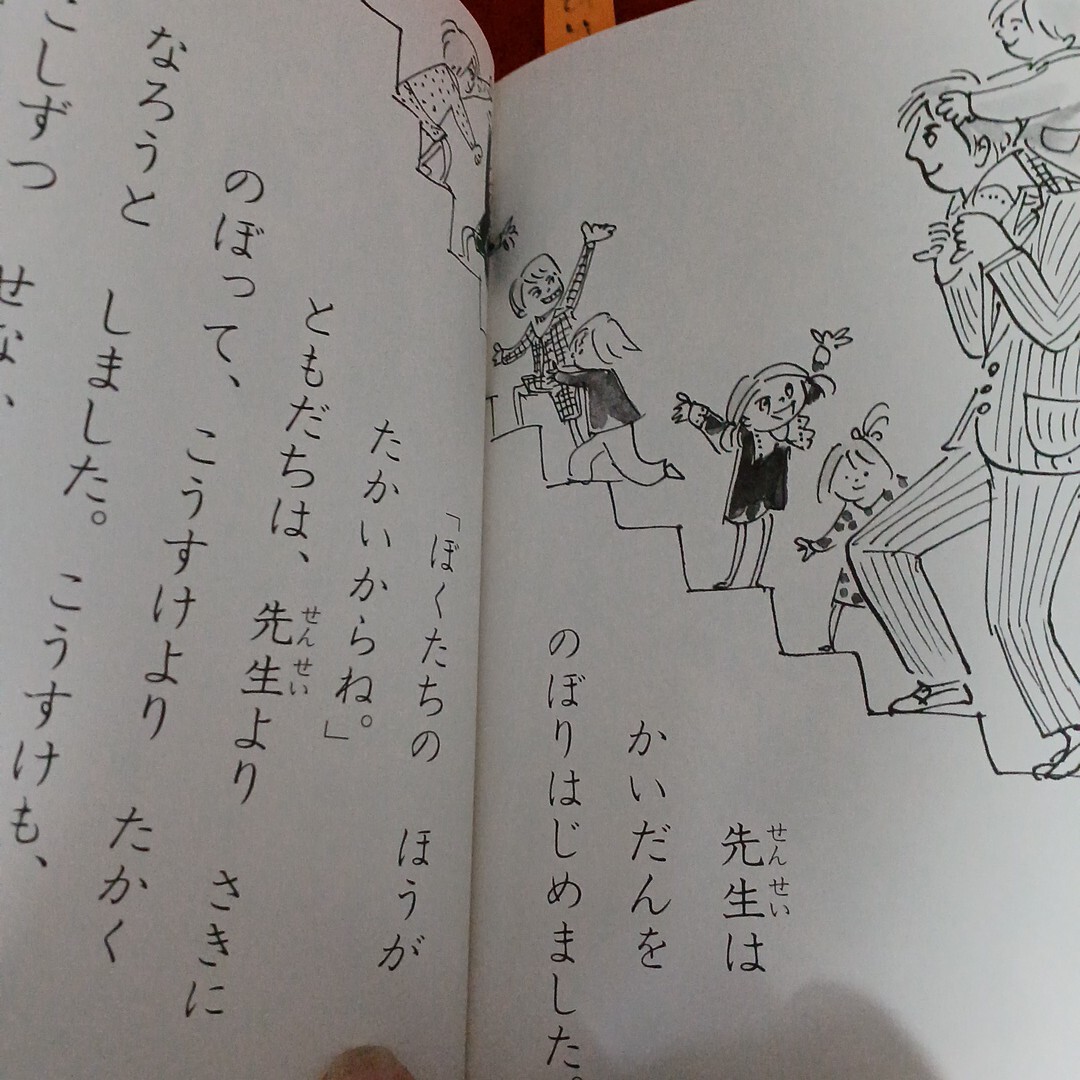 先生は
せんせい
かいだんを
のぼりはじめました。
「ぼくたちの ほうが
たかいからね。」
ともだちは、先生より さきに
せんせい
のぼって、こうすけより たかく
なろうと しました。こうすけも、
こしずつ せな、